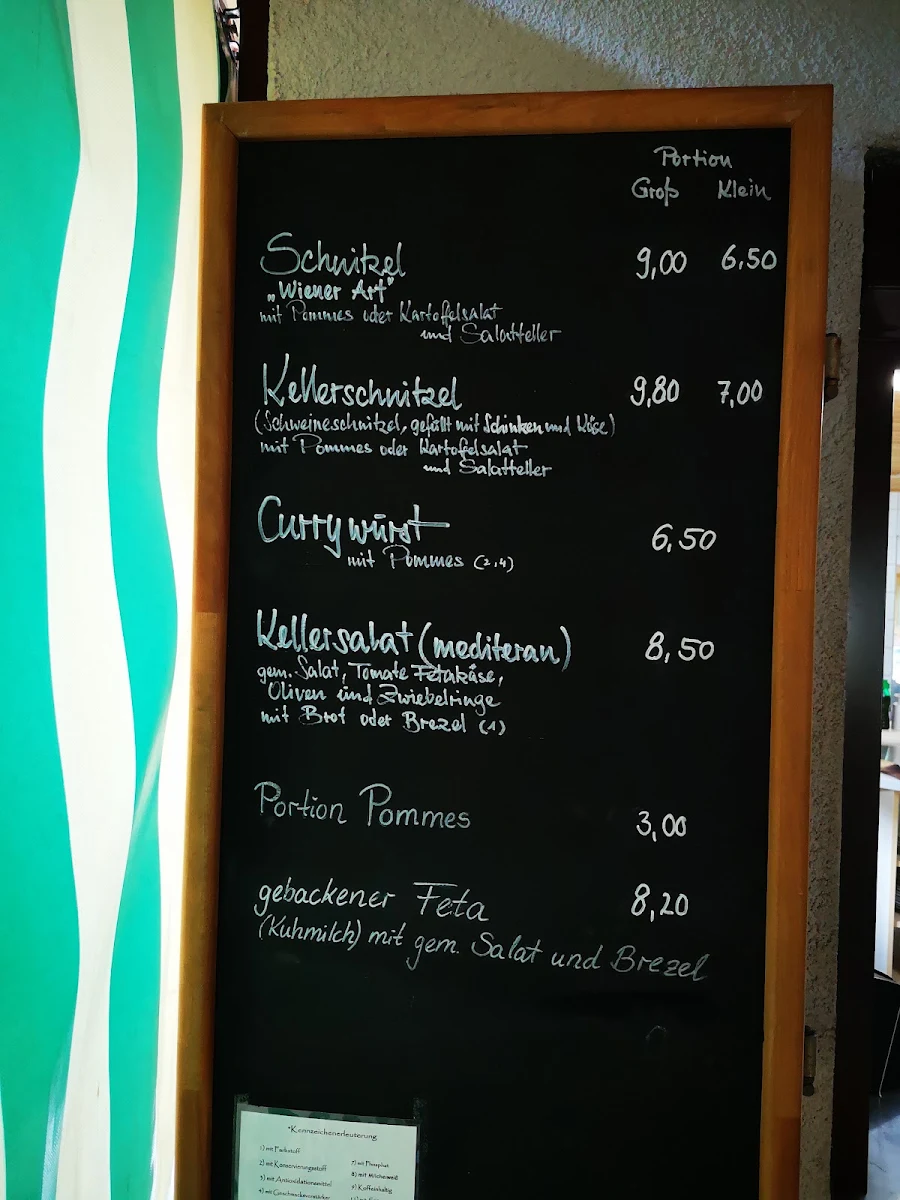 Portion
Groß Klein
Schnitzel 9,00 6,50
„Wiener Art"
mit Pommes oder Kartoffelsalat
und Salatteller
Kellerschnitzel 9,80 7,00
(Schweineschnitzel, gefüllt mit Schinken und Käse)
mit Pommes oder Kartoffelsalat
und Salatteller
Currywurst 6,50
mit Pommes (2,4)
Kellersalat (mediteran) 8,50
gem. Salat, Tomate Fetakäse,
Oliven und Zwiebelringe
mit Brot oder Brezel (1)
Portion Pommes 3,00
gebackener Feta 8,20
(Kuhmilch) mit gem. Salat und Brezel
*Kennzeichenerleuterung
1) mit Farbstoff
2) mit Konservierungsstoff 7) mit Phosphat
3) mit Antioxidationsmittel 8) mit Milcheiweiß
4) mit Geschmacksverstärker 9) Koffeinhaltig